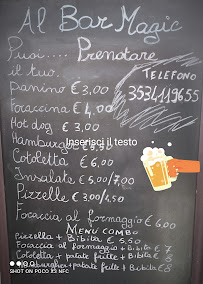 Al Bar Magic
Puoi.... Prenotare
il tuo.
TELEFONO
3534119655
Panino € 3,00
Focaccina € 4,00
Hot dog € 3,00
Hamburger
Inserisci il testo
Cotoletta € 6,00
Insalate € 5,00/7,00
Pizzelle € 3,00/4,50
Focaccia al formaggio € 6,00
MENU COMBO
Pizzella + Bibita € 5,50
Focaccia al formaggio + Bibita € 7
Cotoletta + patate fritte + Bibita € 8
Hamburger + patate fritte + Bibita € 8
SHOT ON POCO X3 NFC